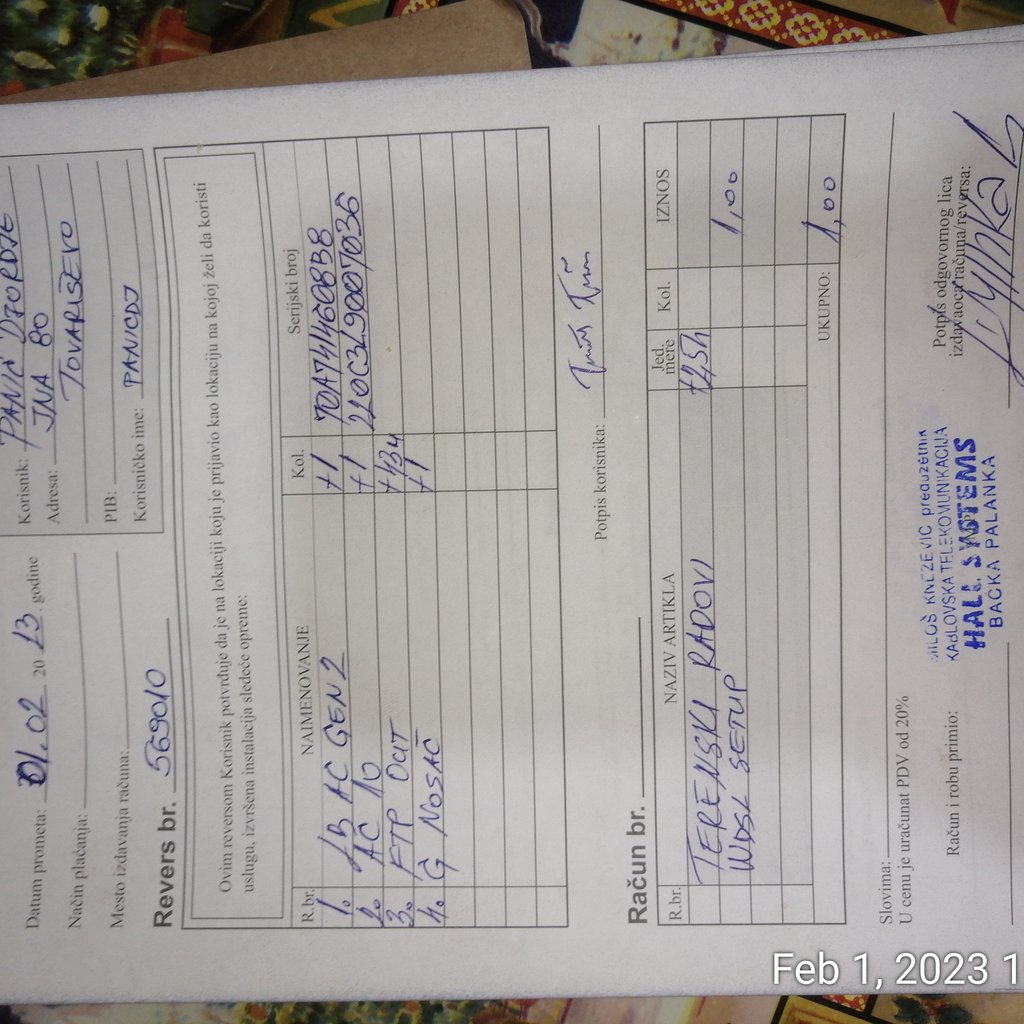 Datum prometa: 01.02 2023. godine
Način plaćanja:
Mesto izdavanja računa:
Korisnik: PANIĆ DJORDJE
Adresa: JNA 80
TOVARIŠEVO
PIB:
Korisničko ime: PANICDJ
Revers br. 569010
Ovim reversom Korisnik potvrđuje da je na lokaciji koju je prijavio kao lokaciju na kojoj želi da koristi
uslugu, izvršena instalacija sledeće opreme:
R.br. NAIMENOVANJE Kol. Serijski broj
1. LB AC GEN2 +1 70A741460B3B
2. AC 10 +1 220C3L9007036
3. FTP OUT +434
4. G NOSAČ +1
Potpis korisnika:
Račun br.
R.br. NAZIV ARTIKLA Jed. mere Kol. IZNOS
TERENSKI RADOVI +2,5H 1,00
WDSL SETUP
UKUPNO: 1,00
Slovima:
U cenu je uračunat PDV od 20%
Račun i robu primio:
MILOŠ KNEZEVIĆ preduzetnik
KABLOVSKA TELEKOMUNIKACIJA
HALL SYSTEMS
BACKA PALANKA
Potpis odgovornog lica
izdavaoca računa/reversa:
Feb 1, 2023 1